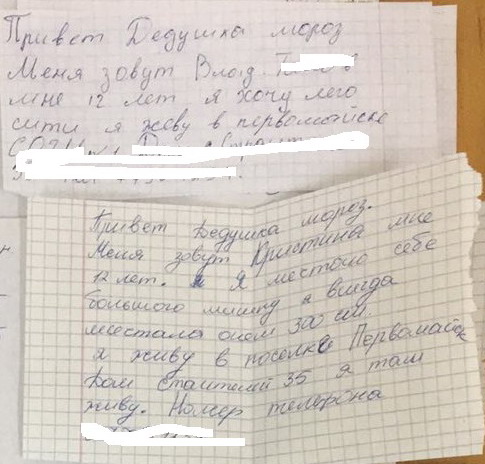 Привет Дедушка мороз
Меня зовут Влад.
мне 12 лет я хочу лего
сити я живу в первомайске
Привет Дедушка мороз.
Меня зовут Кристина мне
12 лет. Я местаю себе
большого мишку я всигда
место
местала оном 300 см.
я живу в поселке Первомайск
дом 35 я там
живу. Номер телефона